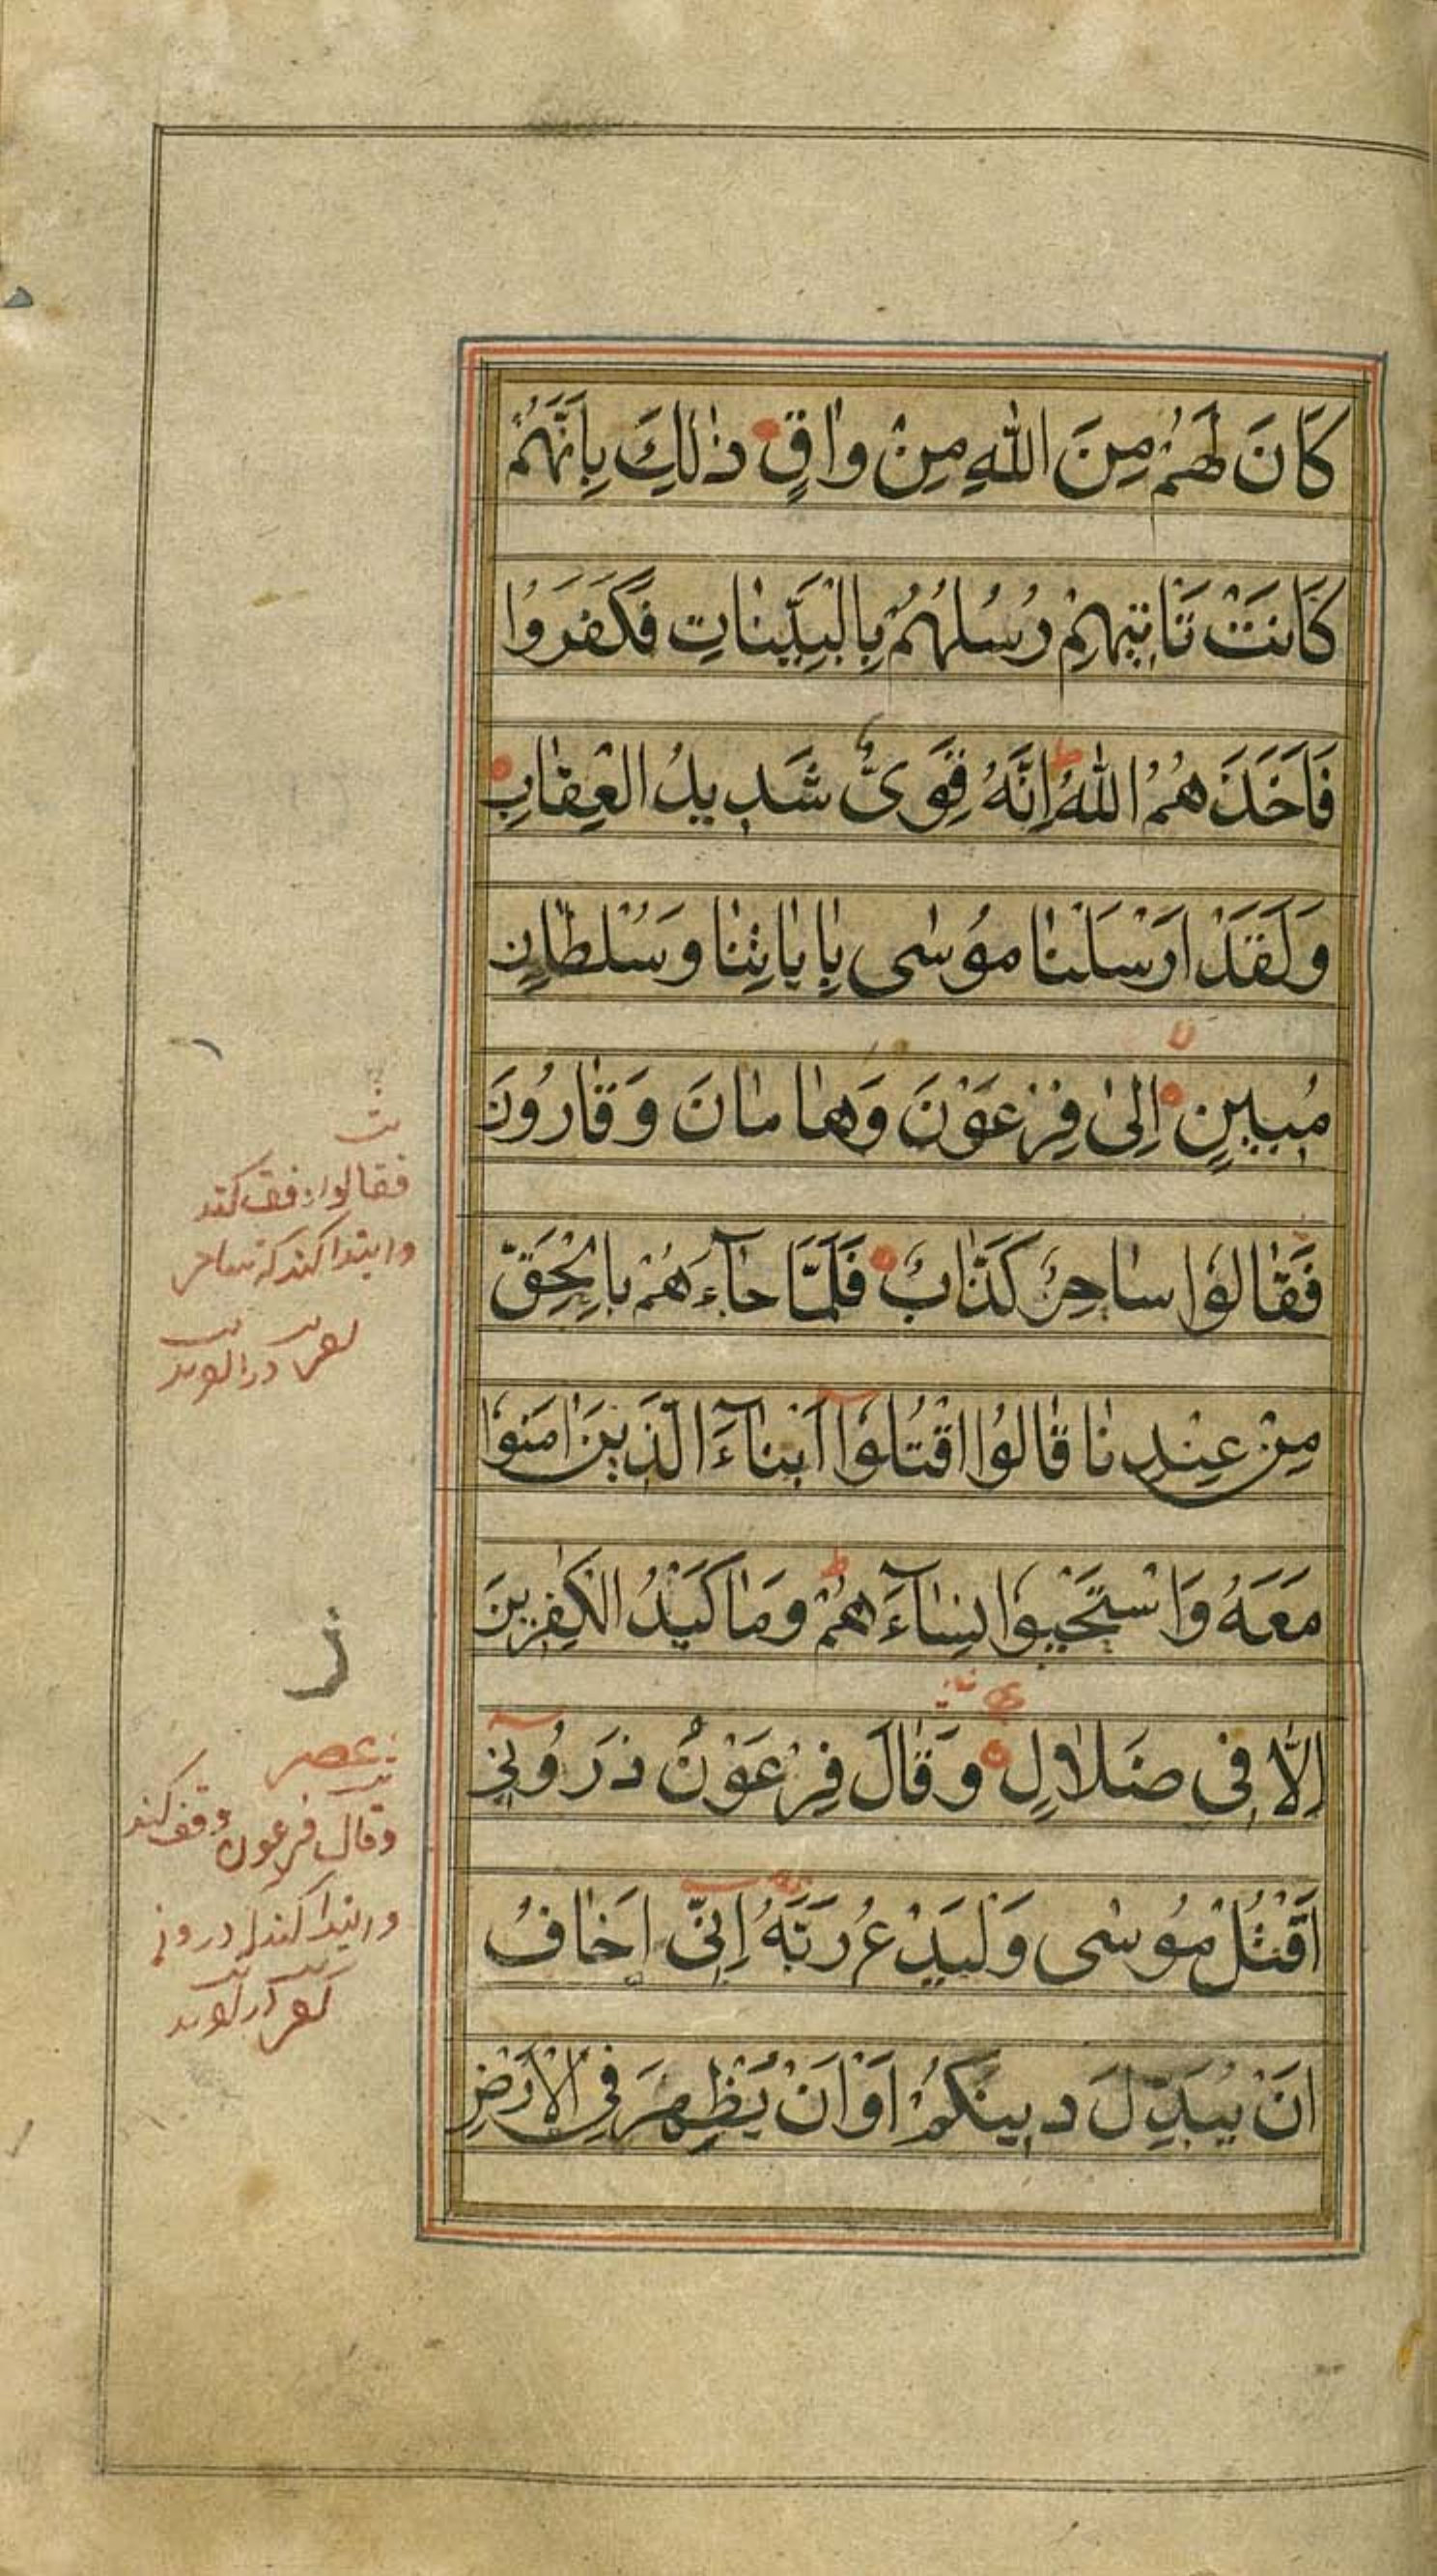 كَانَ لَهُمْ مِنَ اللهِ مِنْ وٰاقٍ ذٰلِكَ بِاَنَّهُمْ
كَانَتْ تَاْتيٖهِمْ رُسُلُهُمْ بِالْبَيِّنٰاتِ فَكَفَرُوْا
فَاَخَذَهُمُ اللهُ ط اِنَّهُ قَوِىٌّ شَدٖيدُ الْعِقٰابِ
وَلَقَدْ اَرْسَلْنٰا مُوْسٰى بِاٰيٰاتِنٰا وَسُلْطٰانٍ
مُبيٖنٍ اِلىٰ فِرْعَوْنَ وَهٰامٰانَ وَقٰارُونَ
فَقٰالُوْا سٰاحِرٌ كَذّٰابٌ فَلَمّٰا جٰآءَهُمْ بِالْحَقِّ
مِنْ عِنْدِنٰا قٰالُوْا اقْتُلُوْآ اَبْنٰآءَ الَّذٖينَ اٰمَنُوْا
مَعَهُ وَاسْتَحْيُوْا نِسٰآءَهُمْ ط وَمٰا كَيْدُ الْكٰفِرٖينَ
اِلّٰا فٖى ضَلٰالٍ وَقٰالَ فِرْعَوْنُ ذَرُوْنٖىٓ
اَقْتُلْ مُوْسٰى وَلْيَدْعُ رَبَّهُ اِنّٖىٓ اَخٰافُ
اَنْ يُبَدِّلَ دٖينَكُمْ اَوْ اَنْ يُظْهِرَ فِى الْاَرْضِ
فقالوا وقف كند
وابتدا كند كه ساحر
ز
عصر
وقال فرعون وقف كند
وابتدا كند ذروني